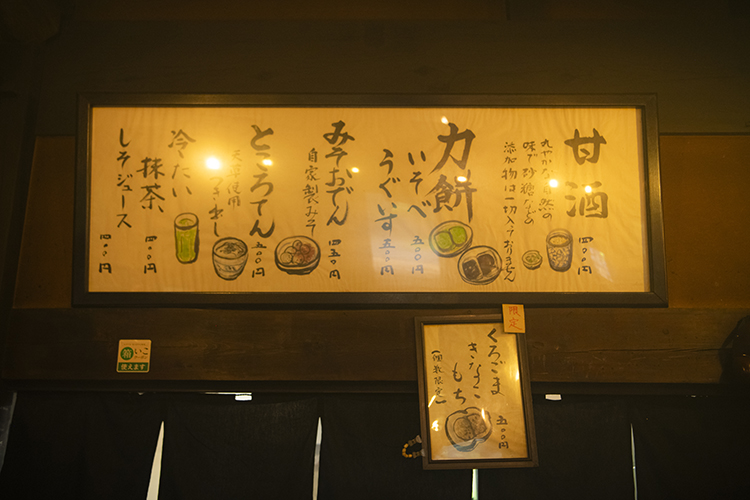 甘酒
丸やかな自然の
味で砂糖などの
添加物は一切入っておりません
四〇〇円
力餅
いそべ
五〇〇円
うぐいす
五〇〇円
みそおでん
自家製みそ
四五〇円
ところてん
天草使用
つき出し
五〇〇円
冷たい
抹茶
四〇〇円
しそジュース
四〇〇円
限定
くろごま
きなこ
もち
【個数限定】
五〇〇円
使えます